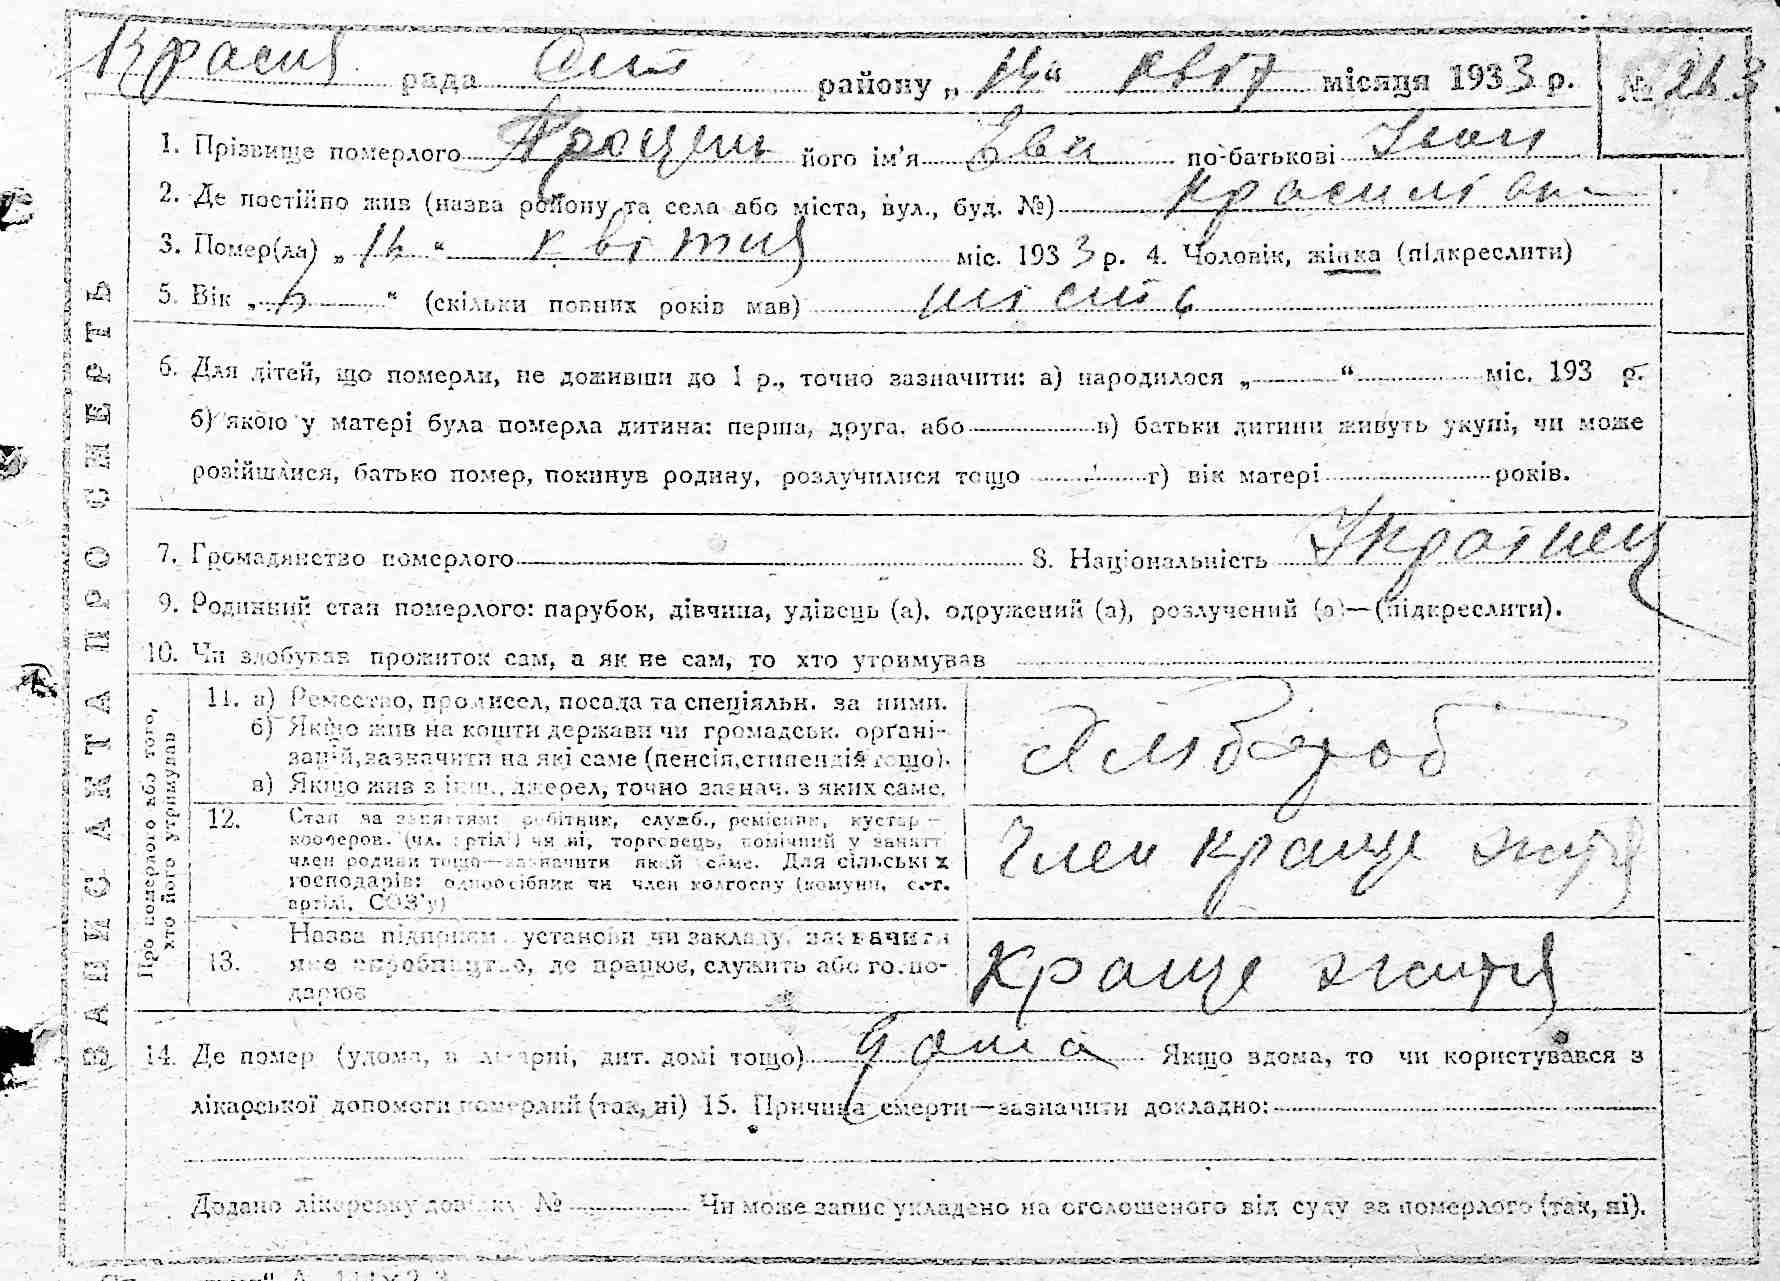 рада району „14“ квіт місяця 1933 р. № 263
1. Прізвище померлого Процень його ім'я Єва по-батькові Іван
2. Де постійно жив (назва району та села або міста, вул., буд. №)
3. Помер(ла) „14“ квітня міс. 1933 р. 4. Чоловік, жінка (підкреслити)
5. Вік „6“ (скільки повних років мав) шість
6. Для дітей, що померли, не доживши до 1 р., точно зазначити: а) народилося „ “ міс. 193 р.
б) якою у матері була померла дитина: перша, друга, або в) батьки дитини живуть укупі, чи може
розійшлися, батько помер, покинув родину, розлучилися тощо г) вік матері років.
7. Громадянство померлого 8. Національність Українец
9. Родинний стан померлого: парубок, дівчина, удівець (а), одружений (а), розлучений (а)—(підкреслити).
10. Чи здобував прожиток сам, а як не сам, то хто утримував
Про померлого або того,
хто його утримував
11. а) Ремество, промисел, посада та спеціяльн. за ними.
б) Якщо жив на кошти держави чи громадськ. орґані-
зацій, зазначити на які саме (пенсія, стипендія тощо).
в) Якщо жив з інш. джерел, точно зазнач. з яких саме.
Хлібороб
12. Стан за заняттям: робітник, служб., ремісник, кустар—
кооперов. (чл. артілі) чи ні, торговець, помічний у занятт.
член родини тощо—зазначити який саме. Для сільських
господарів: одноосібник чи член колгоспу (комуни, с.-г.
артілі, СОЗ'у)
Член Краще життя
13. Назва підприєм., установи чи закладу, зазначити
яке виробництво, де працює, служить або госпо-
дарює
Краще життя
14. Де помер (удома, в лікарні, дит. домі тощо) дома Якщо вдома, то чи користувався з
лікарської допомоги померлий (так, ні) 15. Причина смерти—зазначити докладно:
Додано лікарську довідку № Чи може запис укладено на оголошеного від суду за померлого (так, ні).
ЗАПИС АКТА ПРО СМЕРТЬ